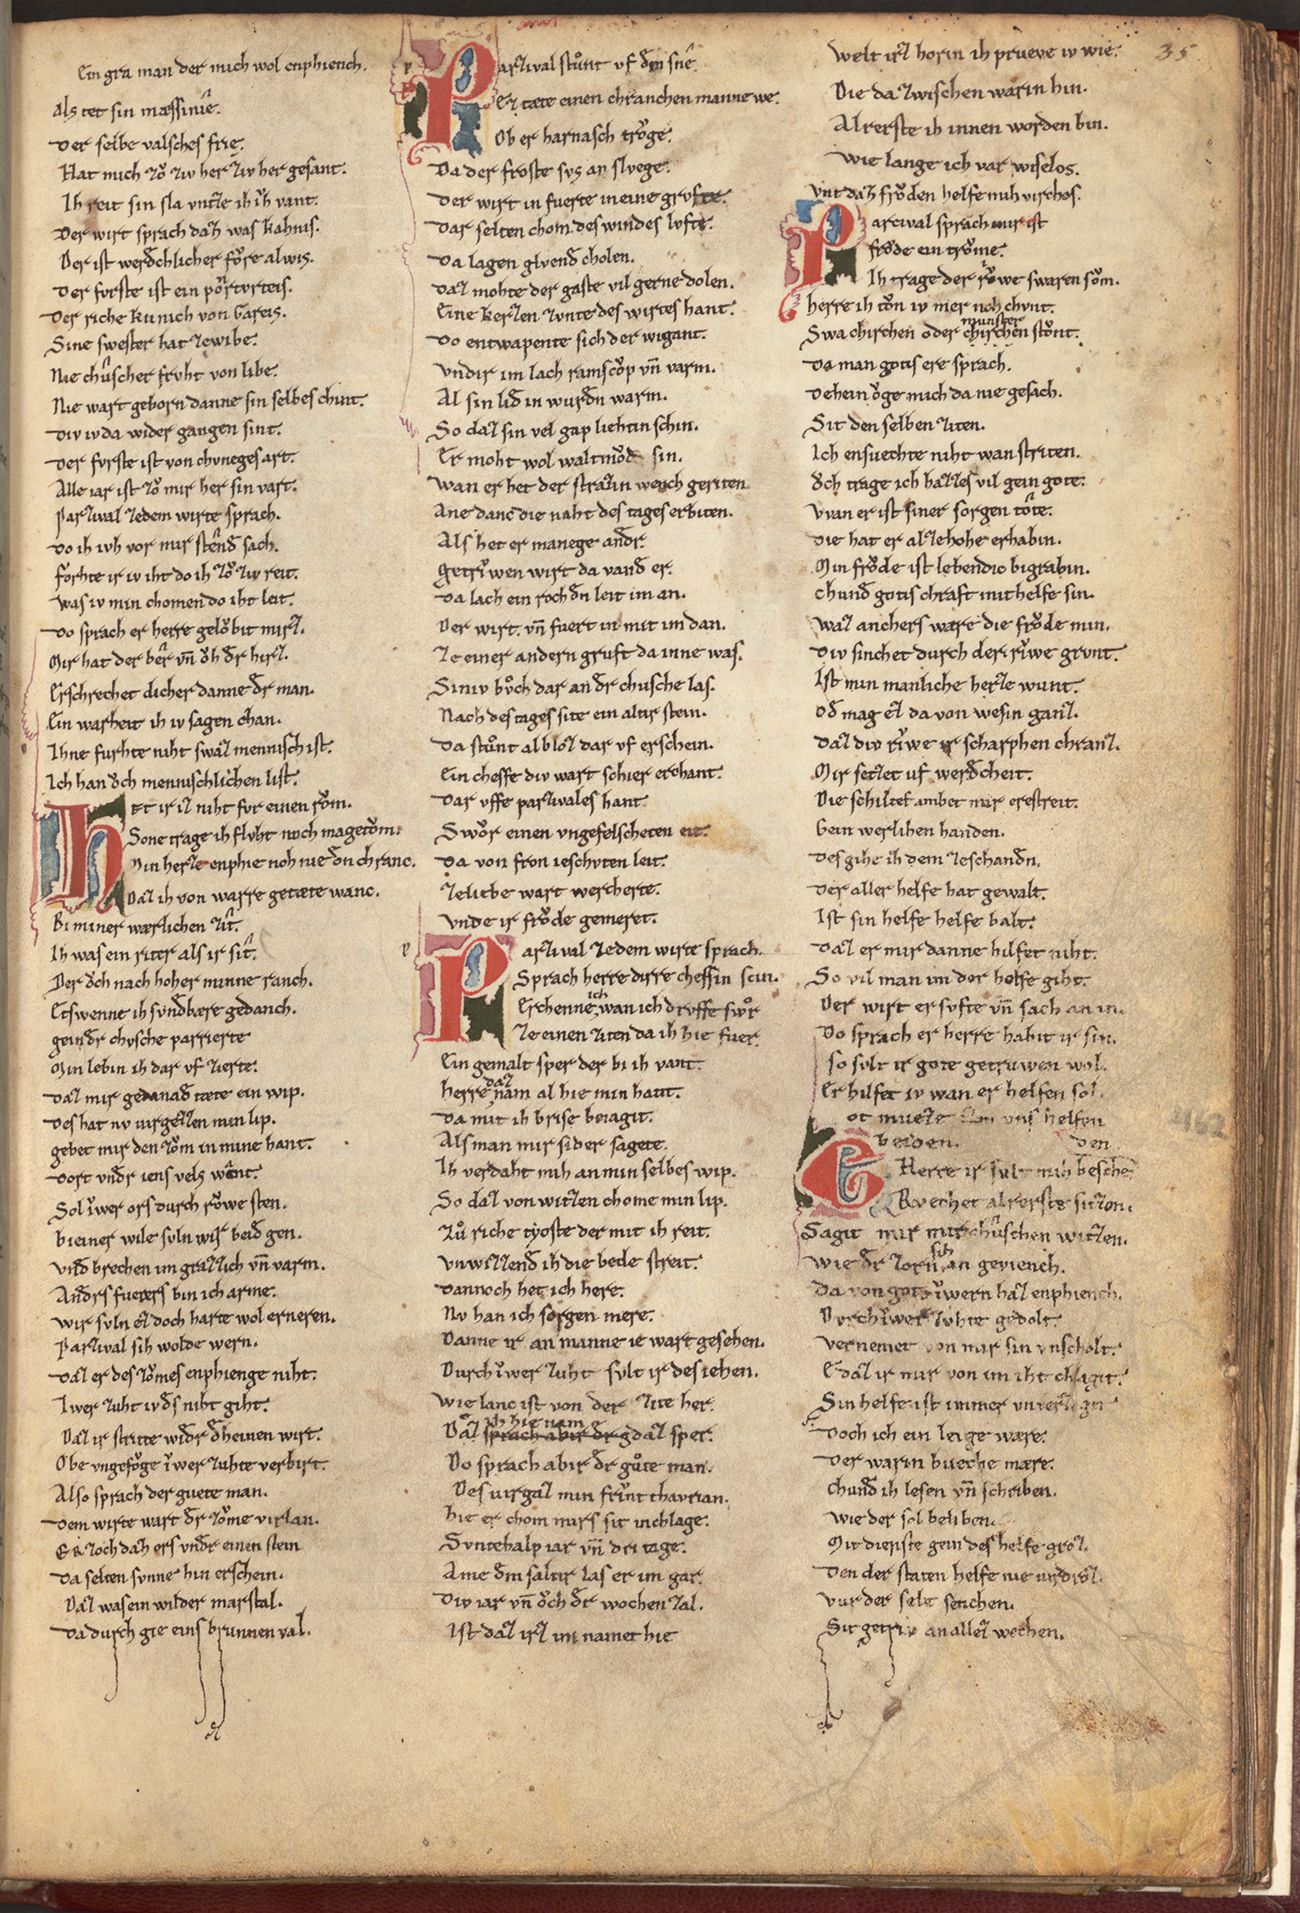 35
Ein gra man der mich wol enphiench.
Als tet sin mæssinîe.
Der selbe valsches frie.
Hat mich zuͦ ziv her ziv her gesant.
Ih reit sin sla vntze ih iͮh vant.
Der wirt sprach daz was kahnis.
Der ist werdchlicher fuͦre al wis.
Der furste ist ein poͮrtvrteis.
Der riche kunich von Gareis.
Sine swester hat zewibe.
Nie chûscher fruht von libe.
Nie wart geborn danne sin selbes chint.
Div iv da wider gangen sint.
Der furste ist von chuneges art.
Alle iar ist zuͦ mir her sin vart.
Parzival zedem wirte sprach.
Do ih ivh vor mir stênd sach.
forhte ir iv iht do ih zuͦ ziv reit.
Was iv min chomen do iht leit.
Do sprach er herre geloͮbit mirz.
Mir hat der ber vn̄ oͮh dr hirz.
Erschrechet dicher danne dr man.
Ein warheit ih iv sagen chan.
Ihne furhte niht swaz mennisch ist.
Ich han oͮch mennischlichen list.
Het ir iz niht fur einen roͮm.
Sone trage ih fluht noch magetoͮm.
Min herze enphie noh nie den chranc.
Daz ih von warre getæte wanc.
Bi miner wærlichen zît.
Ih was ein riter als ir sît.
Der oͮch nach hoher minne ranch.
Etswenne ih svndbære gedanch.
gein dr chusche parrierte
Min lebin ih dar vf zierte.
Daz mir genanad tæte ein wip.
Des hat nv virgezzen min lip.
gebet mir den zoͮm in mine hant.
Dort vndr iens vels wênt.
Sol iͮwer ors durch ruͦwe sten.
bi einer wile suln wir beid gen.
Vnd brechen im grazzich vn̄ varm.
Andrs fueters bin ich arme.
Wir suln ez doch harte wol erneren.
Parzival sih wolde wern.
Daz er des zoͮmes enphienge niht.
Iwer zuht iv ds niht giht.
Daz ir strite widr dheinen wirt.
Obe vngefoͮge iͮwer zuhte verbirt.
Also sprach der guete man.
Dem wirte wart dr zoͮme virlan.
Er zoch daz ers vndr einen stein
Da selten sunne hin erschein.
Daz was ein wilder marstal.
Da durch gie eins brunnen val.
Parzival stuͦnt vf dem snê.
Ez tæte einen chranchen manne we.
Ob er harnasch troͮge.
Da der froste sus an sluege.
Der wirt in fuerte in eine gruft.
Dar selten chom des windes luft.
Da lagen gluend cholen.
Daz mohte der gaste vil gerne dolen.
Eine kerzen zunte des wirtes hant.
Do entwapente sich der wigant.
Vndir im lach ramschoͮp vn̄ varm.
Al sin lid in wurdn warm.
So daz sin vel gap liehtin schin.
Er moht wol waltmuͦd sin.
Wan er het der strazin wench geriten
Ane danc die naht des tages erbiten.
Als het er manege andr.
Getriͮwen wirt da vand er.
Da lach ein roch den leit im an.
Der wirt. vn̄ fuert in mit im dan.
Ze einer andern gruft da inne was.
Siniv buͦch dar an dr chusche las.
Nach des tages site ein altir stein.
Da stuͦnt al bloz dar vf erschein.
Ein cheffe div wart schier erchant.
Dar vffe parzivales hant
Swuͦr einen vngefelscheten eit.
Da von fron ieschuten leit.
Zeliebe wart wercherte.
Vnde ir froͮde gemeret.
Parzival zedem wirte sprach.
Sprach herre dirre cheffin scin.
Erchenne ich wan ich druffe swuͦr
Ze einen ziten da ih hie fuer.
Ein gemalt sper der bi ih vant.
herre daz nam al hie min hant.
Da mit ih brise beiagit.
Als man mir sider sagete.
Ih verdaht mih an min selbes wip.
So daz von witzen chome min lip.
Zuͦ riche tyoste der mit ih reit.
Vnwizzend ih die bede streit.
Dannoch het ich here.
Nv han ich sorgen mere.
Danne ir an manne ie wart gesehen.
Durch iͮwer zuht sult ir des iehen.
Wie lanc ist von der zite her.
ih hie nam
Daz sprach abir dr gdaz sper.
Do sprach abir dr guͦte man.
Des virgaz min friͮnt thavrian.
hie er chom mirs sit in chlage.
Suntehalp iar vn̄ dri tage.
Ane dm saltir las er im gar.
Div iar vn̄ oͮch dr wochen zal.
Ist daz irz im namet hie
Welt irz horin ih prueve iv wie.
Die da zwischen warin hin.
Alrerste ih innen worden bin.
Wie lange ich var wiselos.
Vnt daz froͮden helfe mih virchos.
Parcival sprach mir ist
froͮde ein troͮme.
Ih trage der riͮwe swaren soͮm.
herre ih toͮn iv mer noh chunt.
munster
Swa chirchen oder chirchen stoͮnt.
Da man gotis ere sprach.
Dehein oͮge mich da nie gesach.
Sit den selben ziten.
Ich ensuechte niht wan striten.
Oͮch trage ich hazzes vil gein gote.
Wan er ist siner sorgen tôte.
Die hat er alze hohe erhabin.
Min froͮde ist lebendic bigrabin.
chund gotis chraft mit helfe sin.
Waz anchers wære die froͮde min.
Div sinchet durch der riͮwe grunt.
Ist min manliche herze wunt.
Od mag ez da von wesin ganz.
Daz div riͮwe ir scharphen chranz.
Mir setzet uf werdcheit.
Die schiltes ambet mir erestreit.
Gein werlihen handen.
Des gihe ih dem zeschandn.
Der aller helfe hat gewalt.
Ist sin helfe helfe balt.
Daz er mir danne hilfet niht.
So vil man im der helfe giht.
Der wirt ersufte vn̄ sach an in.
Do sprach er herre habit ir sin.
so sult ir gote getruwen wol.
Er hilfet iv wan er helfen sol.
ot mueze vns helfen
beiden. den
Herre ir sult mih besche
Ruechet alrerste sitzen.
Sagit mir mit chûschen witzen.
Wie dr zorn sih an geviench.
Da von got iͮwern haz enphiench.
Durch iͮwer zuhte gedolt.
Vernemet von mir sin vnscholt.
E daz ir mir von im iht chlagit.
Sin helfe ist immer vnverzagit
Doch ich ein leige wære.
Der warin bueche mære.
Chund ih lesen vn̄ schriben.
Wie der sol beliben.
Mit dieniste gein des helfe groz.
Den der staten helfe nie virdroz.
Vur der sele senchen.
Sit getriv an allez wechen.